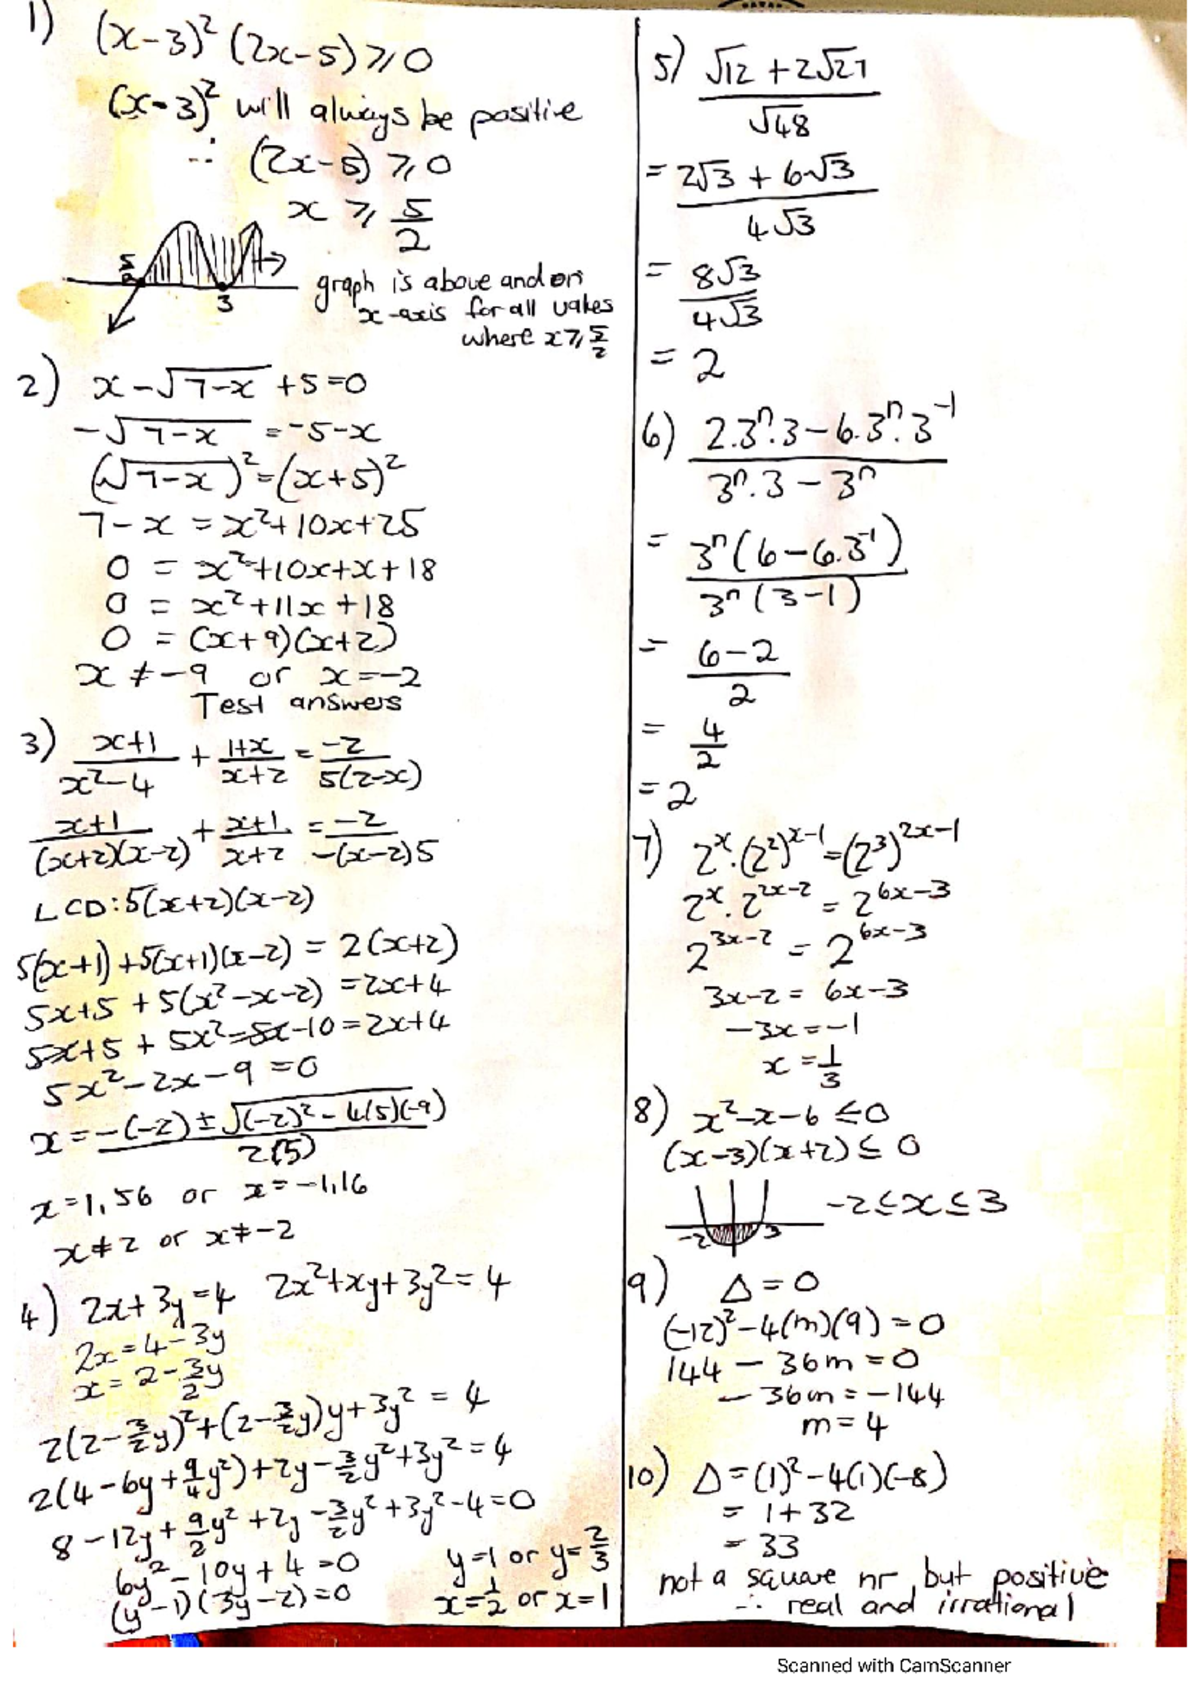 1) (x-3)² (2x-5) ≥ 0
(x-3)² will always be positive
∴ (2x-5) ≥ 0
x ≥ 5/2
5/2
3
graph is above and on
x-axis for all values
where x ≥ 5/2
2) x - √(7-x) + 5 = 0
-√(7-x) = -5-x
(√(7-x))² = (x+5)²
7-x = x²+10x+25
0 = x²+10x+x+18
0 = x²+11x+18
0 = (x+9)(x+2)
x ≠ -9 or x = -2
Test answers
3) (x+1)/(x²-4) + (1+x)/(x+2) = -2/(5(2-x))
(x+1)/((x+2)(x-2)) + (x+1)/(x+2) = -2/(-(x-2)5)
LCD: 5(x+2)(x-2)
5(x+1) + 5(x+1)(x-2) = 2(x+2)
5x+5 + 5(x²-x-2) = 2x+4
5x+5 + 5x²-5x-10 = 2x+4
5x²-2x-9 = 0
x = (-(-2) ± √((-2)² - 4(5)(-9)))/(2(5))
x = 1,56 or x = -1,16
x ≠ 2 or x ≠ -2
4) 2x+3y = 4 2x²+xy+3y² = 4
2x = 4-3y
x = 2-3/2y
2(2-3/2y)²+(2-3/2y)y+3y² = 4
2(4-6y+9/4y²)+2y-3/2y²+3y² = 4
8-12y+9/2y²+2y-3/2y²+3y²-4 = 0
6y²-10y+4 = 0
(y-1)(3y-2) = 0
y = 1 or y = 2/3
x = 1/2 or x = 1
5) (√12 + 2√27)/√48
= (2√3 + 6√3)/(4√3)
= 8√3/4√3
= 2
6) (2.3ⁿ.3 - 6.3ⁿ.3⁻¹)/(3ⁿ.3 - 3ⁿ)
= 3ⁿ(6-6.3⁻¹)/(3ⁿ(3-1))
= (6-2)/2
= 4/2
= 2
7) 2^x.(2²)^(x-1) = (2³)^(2x-1)
2^x.2^(2x-2) = 2^(6x-3)
2^(3x-2) = 2^(6x-3)
3x-2 = 6x-3
-3x = -1
x = 1/3
8) x²-x-6 ≤ 0
(x-3)(x+2) ≤ 0
-2 3
-2 ≤ x ≤ 3
9) Δ = 0
(-12)²-4(m)(9) = 0
144 - 36m = 0
-36m = -144
m = 4
10) Δ = (1)²-4(1)(-8)
= 1+32
= 33
not a square nr, but positive
∴ real and irrational
Scanned with CamScanner